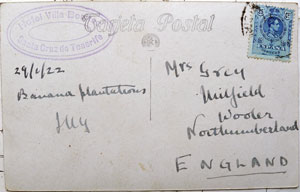 Tarjeta Postal
Hotel Villa
Santa Cruz de Tenerife
29/1/22
Banana plantations
Mrs Grey
Milfield
Wooler
Northumberland
ENGLAND